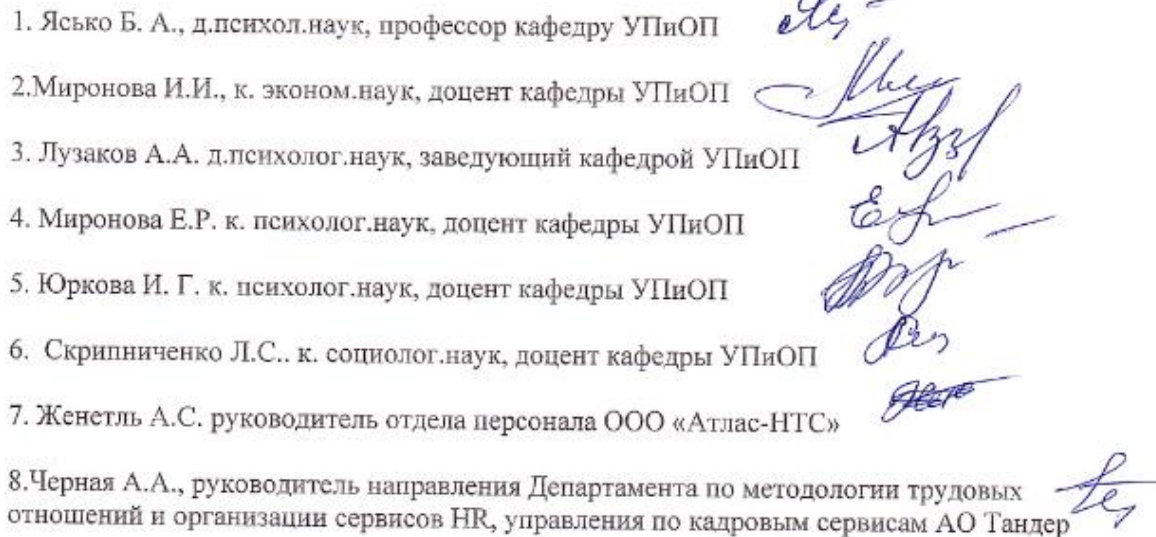 1. Ясько Б. А., д.психол.наук, профессор кафедру УПиОП
2.Миронова И.И., к. эконом.наук, доцент кафедры УПиОП
3. Лузаков А.А. д.психолог.наук, заведующий кафедрой УПиОП
4. Миронова Е.Р. к. психолог.наук, доцент кафедры УПиОП
5. Юркова И. Г. к. психолог.наук, доцент кафедры УПиОП
6. Скрипниченко Л.С.. к. социолог.наук, доцент кафедры УПиОП
7. Женетль А.С. руководитель отдела персонала ООО «Атлас-НТС»
8.Черная А.А., руководитель направления Департамента по методологии трудовых
отношений и организации сервисов HR, управления по кадровым сервисам АО Тандер